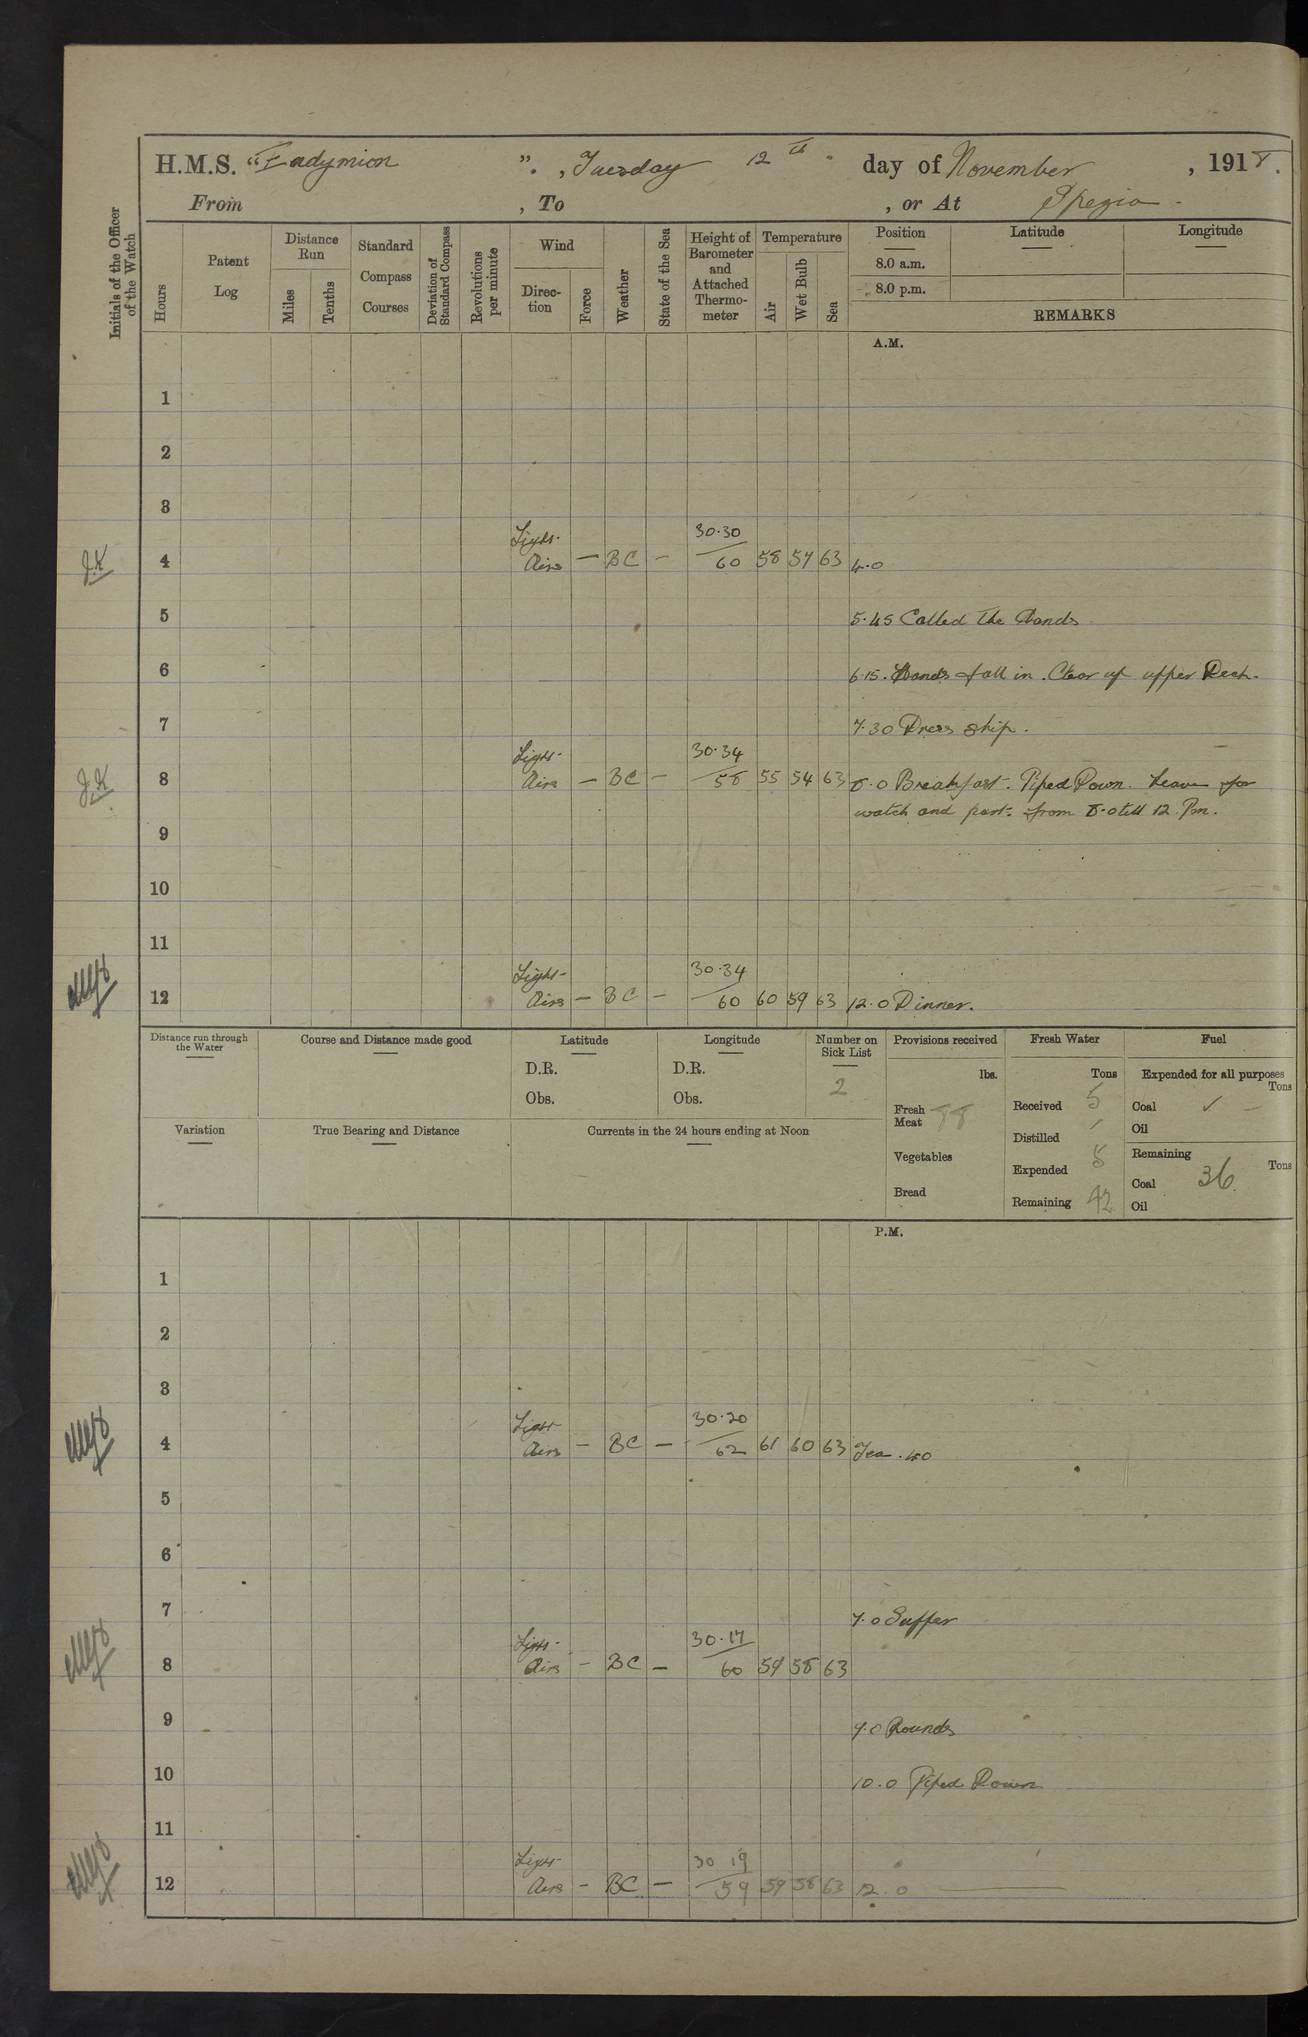 H.M.S. "Endymion", Tuesday 12th day of November, 1918.
From , To , or At Spezia
Initials of the Officer of the Watch
Hours
Patent Log
Distance Run
Miles
Tenths
Standard Compass Courses
Deviation of Standard Compass
Revolutions per minute
Wind
Direction
Force
Weather
State of the Sea
Height of Barometer and Attached Thermometer
Temperature
Air
Wet Bulb
Sea
Position
8.0 a.m.
8.0 p.m.
Latitude
Longitude
REMARKS
A.M.
1
2
3
Light 30.30
J.K 4 Airs — BC — 60 58 57 63 4.0
5 5.45 Called the Hands
6 6.15. Hands fall in. Clear up upper Deck.
7 7.30 Dress ship.
Light 30.34
J.K 8 Airs — BC — 58 55 54 63 8.0 Breakfast. Piped Down. Leave for
watch and part from 8.0 till 12. Pm.
9
10
11
Light 30.34
12 Airs — BC — 60 60 59 63 12.0 Dinner.
Distance run through the Water
Course and Distance made good
Latitude
D.R.
Obs.
Longitude
D.R.
Obs.
Number on Sick List
2
Provisions received
lbs.
Fresh Meat 88
Vegetables
Bread
Fresh Water
Tons
Received 5
Distilled
Expended 5
Remaining 42
Fuel
Expended for all purposes
Tons
Coal ✓ —
Oil
Remaining
Tons
Coal 36
Oil
Variation
True Bearing and Distance
Currents in the 24 hours ending at Noon
P.M.
1
2
3
Light 30.20
4 Airs — BC — 62 61 60 63 Tea. 4.0
5
6
7 7.0 Supper
Light 30.17
8 Airs — BC — 60 59 58 63
9 9.0 Rounds
10 10.0 Piped Down
11
Light 30 19
12 Airs — BC — 59 59 58 63 12.0